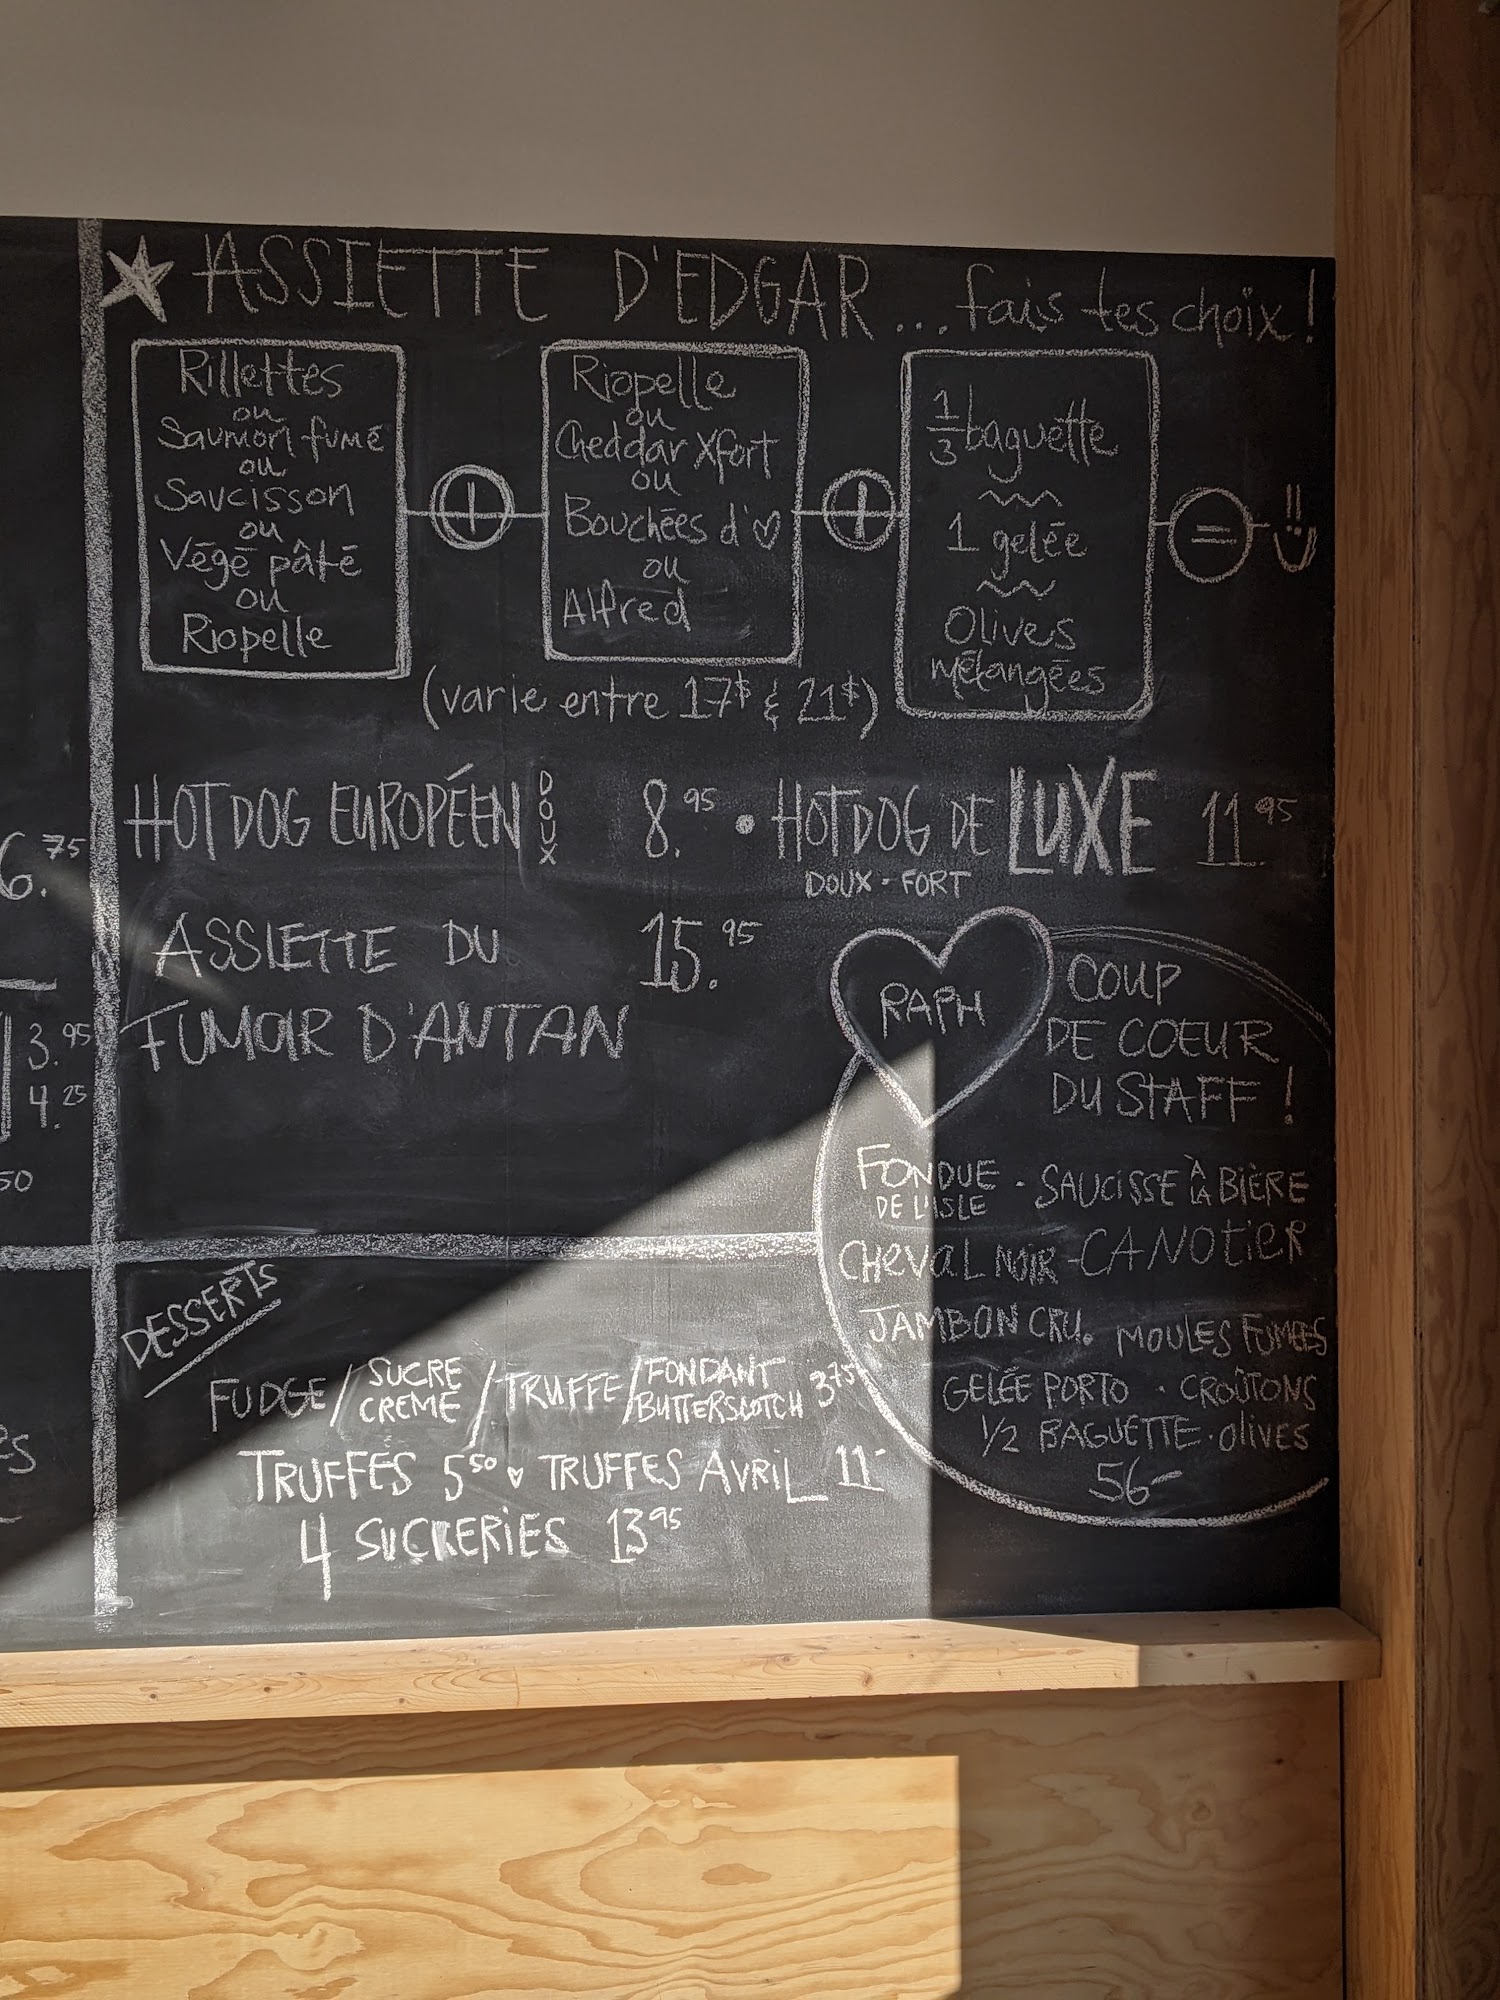 ASSIETTE D'EDGAR ... fais tes choix !
Rillettes
ou
Saumon fumé
ou
Saucisson
ou
Végé pâté
ou
Riopelle
+
Riopelle
ou
Cheddar Xfort
ou
Bouchées d'♡
ou
Alfred
+
1/3 baguette
1 gelée
Olives
mélangées
=
(varie entre 17$ & 21$)
HOT DOG EUROPÉEN DOUX 8.95 • HOT DOG DE LUXE 11.95
DOUX - FORT
ASSIETTE DU 15.95
FUMOIR D'ANTAN
RAPH
COUP
DE COEUR
DU STAFF !
FONDUE DE L'ISLE · SAUCISSE À LA BIÈRE
CHEVAL NOIR - CANOTIER
JAMBON CRU. MOULES FUMÉES
GELÉE PORTO · CROÛTONS
1/2 BAGUETTE · OLIVES
56-
DESSERTS
FUDGE / SUCRE CRÈME / TRUFFE / FONDANT BUTTERSCOTCH 3.75
TRUFFES 5.50 ♡ TRUFFES AVRIL 11-
4 SUCRERIES 13.95
6.75
3.95
4.25
50